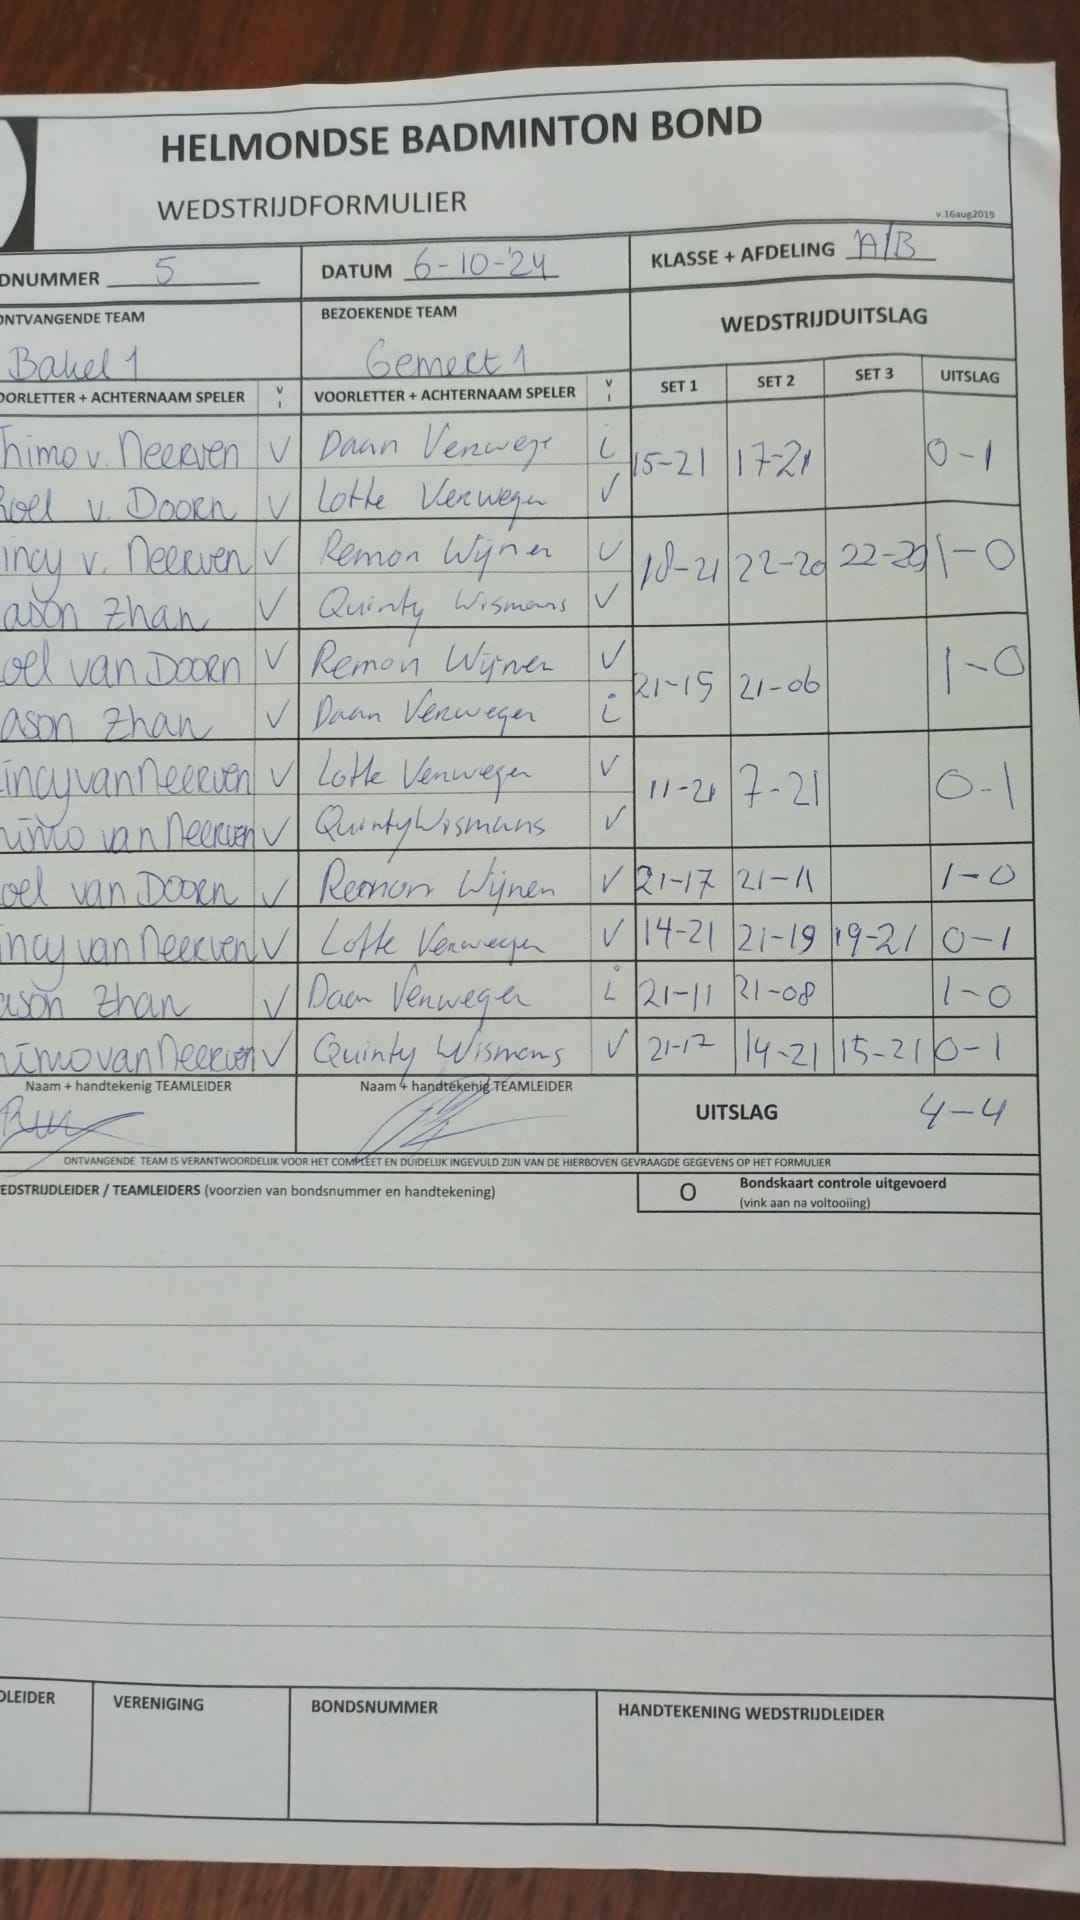 HELMONDSE BADMINTON BOND
WEDSTRIJDFORMULIER
v.16aug2019
DNUMMER 5 DATUM 6-10-'24 KLASSE + AFDELING A/B
ONTVANGENDE TEAM BEZOEKENDE TEAM WEDSTRIJDUITSLAG
Bakel 1 Gemert 1
OORLETTER + ACHTERNAAM SPELER V I VOORLETTER + ACHTERNAAM SPELER V I SET 1 SET 2 SET 3 UITSLAG
himo v. Neerven V Daan Verwege i 15-21 17-21 0-1
oel v. Doorn V Lotte Verwegen V
incy v. Neerven V Remon Wijnen V 18-21 22-20 22-20 1-0
ason Zhan V Quinty Wismans V
oel van Doorn V Remon Wijnen V 21-15 21-06 1-0
ason Zhan V Daan Verwegen i
incy van Neerven V Lotte Verwegen V 11-21 7-21 0-1
himo van Neerven V Quinty Wismans V
oel van Doorn V Remon Wijnen V 21-17 21-11 1-0
incy van Neerven V Lotte Verwegen V 14-21 21-19 19-21 0-1
ason Zhan V Daan Verwegen i 21-11 21-08 1-0
himo van Neerven V Quinty Wismans V 21-17 14-21 15-21 0-1
Naam + handtekenig TEAMLEIDER Naam + handtekenig TEAMLEIDER UITSLAG 4-4
ONTVANGENDE TEAM IS VERANTWOORDELIJK VOOR HET COMPLEET EN DUIDELIJK INGEVULD ZIJN VAN DE HIERBOVEN GEVRAAGDE GEGEVENS OP HET FORMULIER
EDSTRIJDLEIDER / TEAMLEIDERS (voorzien van bondsnummer en handtekening) O Bondskaart controle uitgevoerd
(vink aan na voltooiing)
DLEIDER VERENIGING BONDSNUMMER HANDTEKENING WEDSTRIJDLEIDER